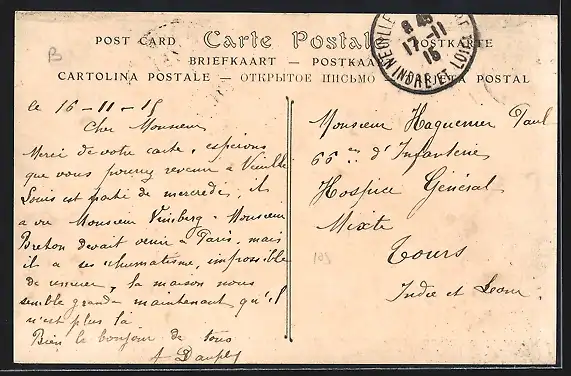 POST CARD. Carte Postale POSTKARTE
BRIEFKAART — POSTKAA
CARTOLINA POSTALE — ОТКРЫТОЕ ПИСЬМО POSTAL
B
8 45
17-11
15
INDRE ET LOIRE
le 16 - 11 - 15
Cher Monsieur
Merci de votre carte, espérons
que vous pourrez revenir à Neuillé
Louis est parti de mercredi, il
a vu Monsieur Monsieur
Breton devait venir à Paris, mais
il a ses rhumatisme, impossible
de, la maison nous
semble grande maintenant qu'il
n'est plus là
Bien le bonjour de tous
A
Monsieur Haguenier Paul
66 d'Infanterie
Hospice Général
Mixte
Tours
Indre et Loire
105